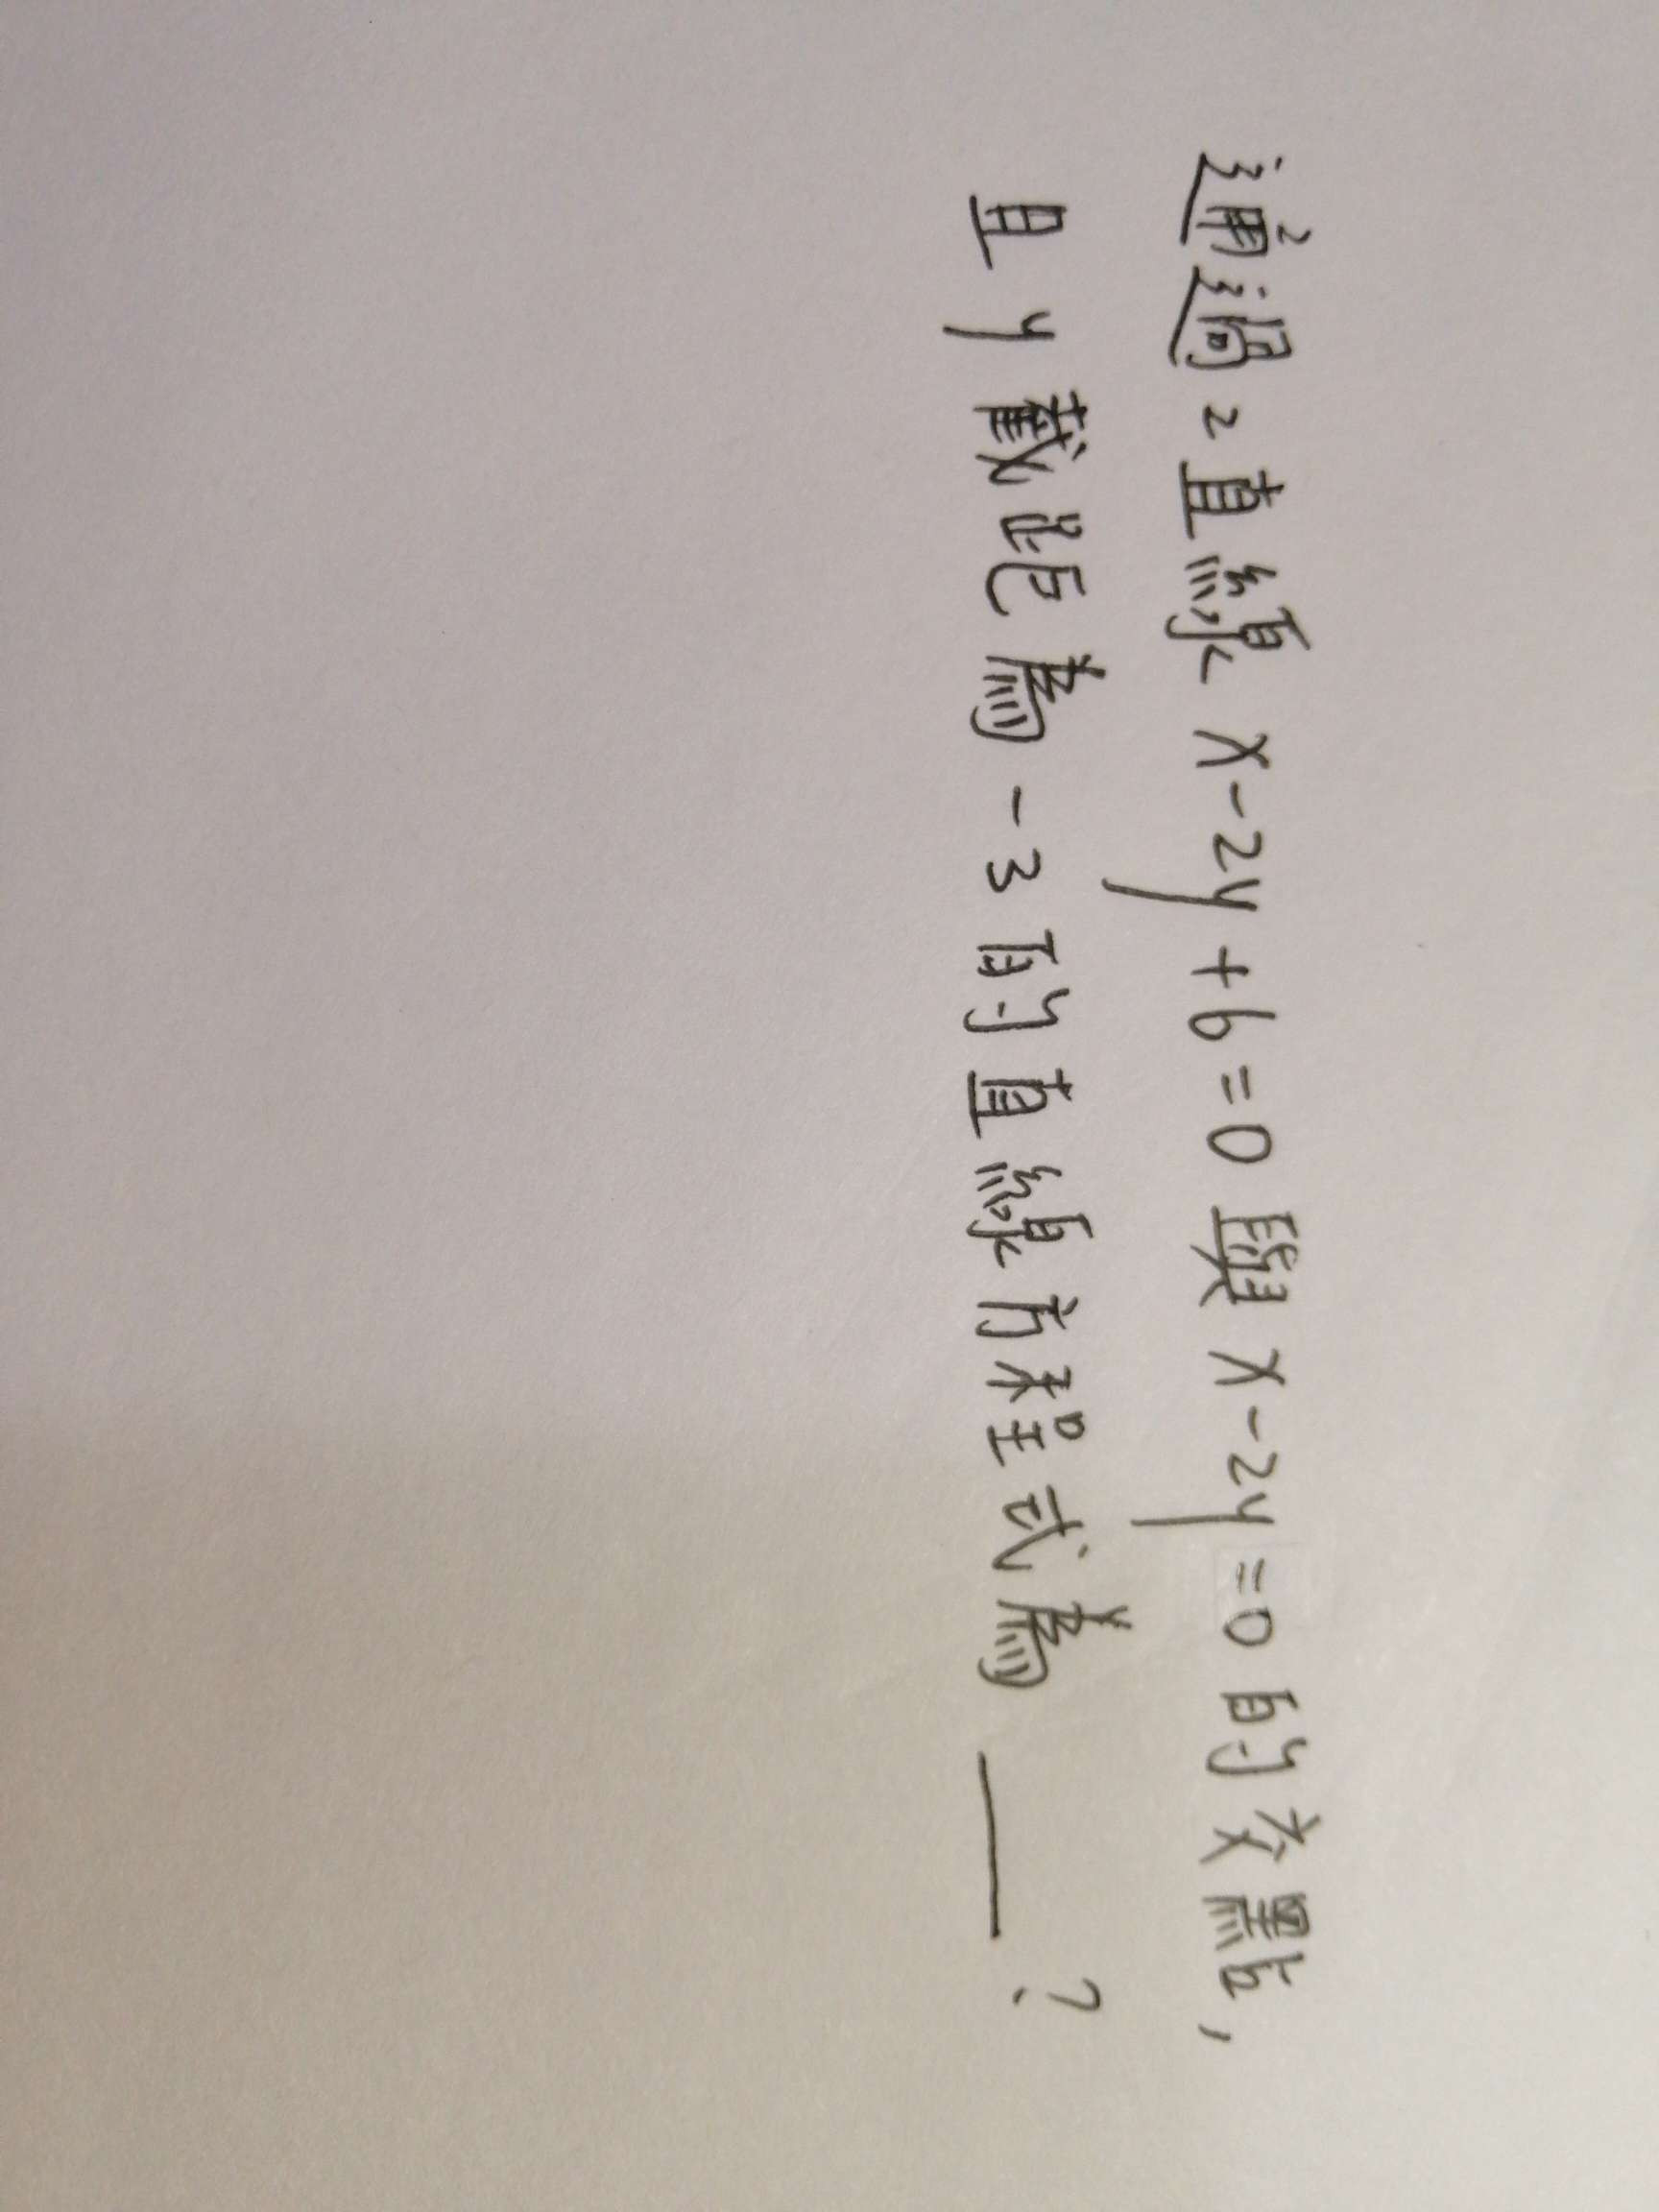 通過2直線 x-2y+6=0 與 x-2y=0 的交點,
且 y 截距為 -3 的直線方程式為 ___ ?